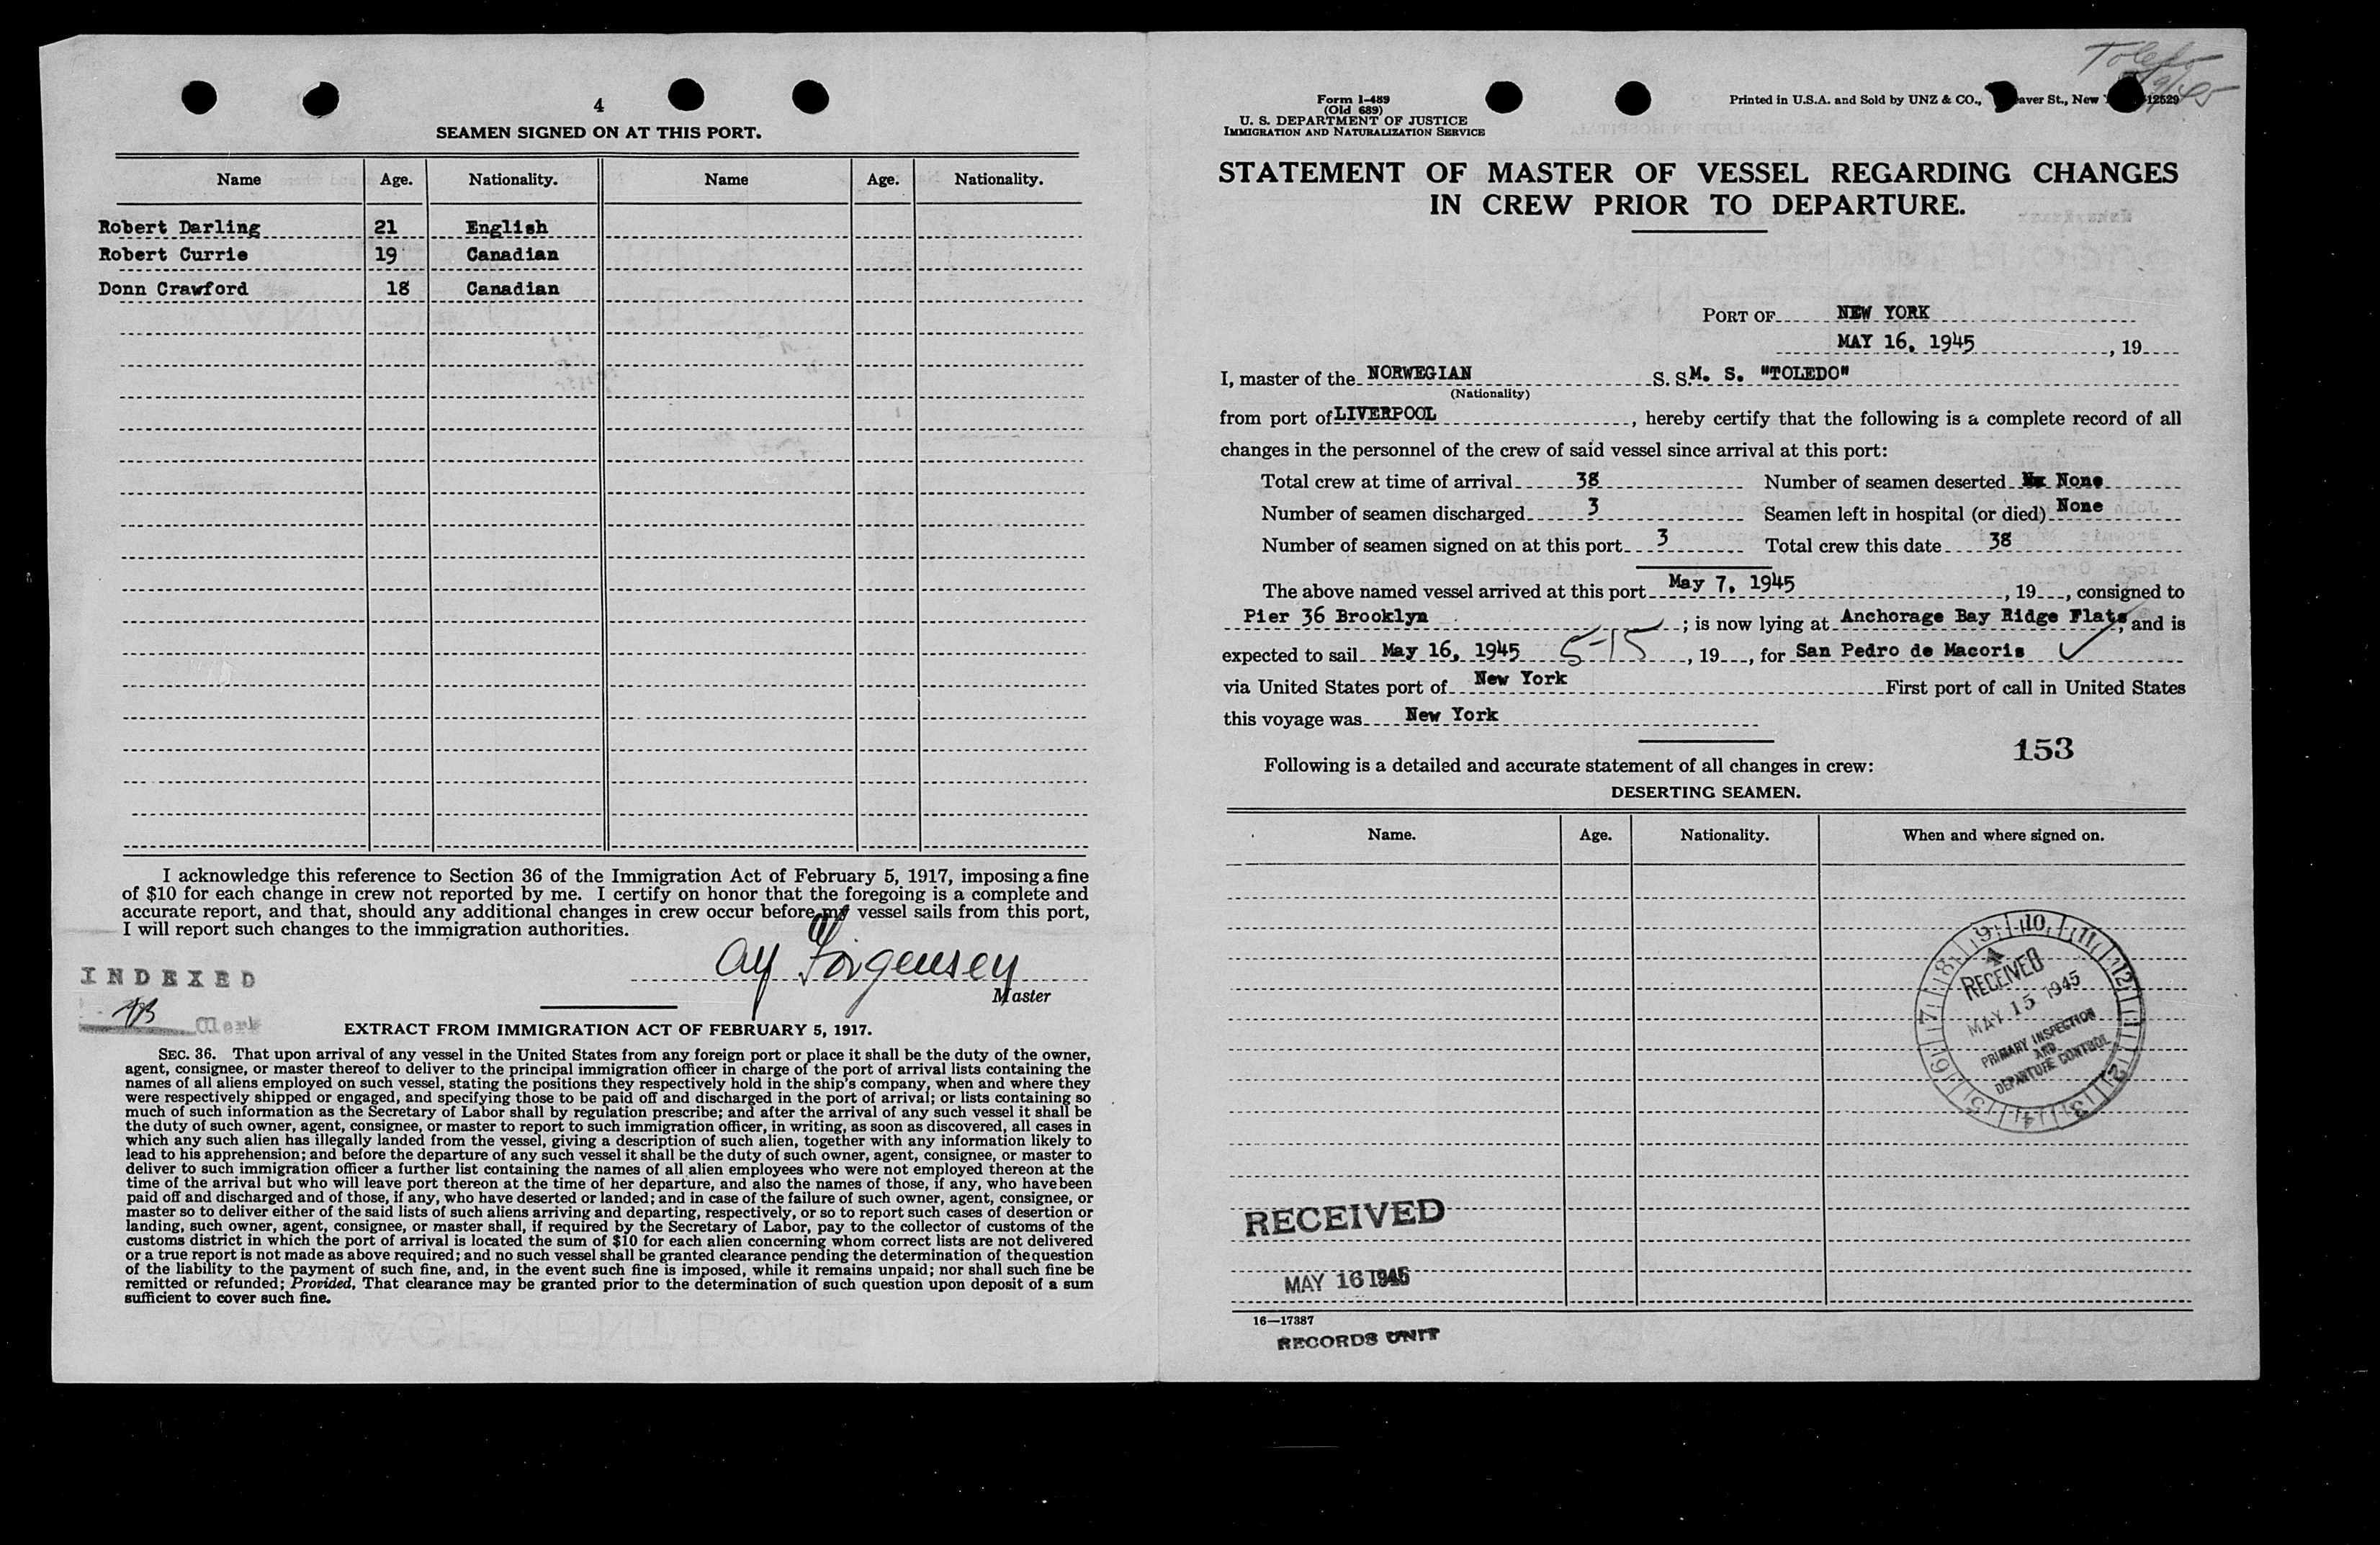 4
SEAMEN SIGNED ON AT THIS PORT.
Name Age. Nationality. Name Age. Nationality.
Robert Darling 21 English
Robert Currie 19 Canadian
Donn Crawford 18 Canadian
I acknowledge this reference to Section 36 of the Immigration Act of February 5, 1917, imposing a fine
of $10 for each change in crew not reported by me. I certify on honor that the foregoing is a complete and
accurate report, and that, should any additional changes in crew occur before my vessel sails from this port,
I will report such changes to the immigration authorities.
Jörgensen
Master
INDEXED
Clerk
EXTRACT FROM IMMIGRATION ACT OF FEBRUARY 5, 1917.
SEC. 36. That upon arrival of any vessel in the United States from any foreign port or place it shall be the duty of the owner,
agent, consignee, or master thereof to deliver to the principal immigration officer in charge of the port of arrival lists containing the
names of all aliens employed on such vessel, stating the positions they respectively hold in the ship's company, when and where they
were respectively shipped or engaged, and specifying those to be paid off and discharged in the port of arrival; or lists containing so
much of such information as the Secretary of Labor shall by regulation prescribe; and after the arrival of any such vessel it shall be
the duty of such owner, agent, consignee, or master to report to such immigration officer, in writing, as soon as discovered, all cases in
which any such alien has illegally landed from the vessel, giving a description of such alien, together with any information likely to
lead to his apprehension; and before the departure of any such vessel it shall be the duty of such owner, agent, consignee, or master to
deliver to such immigration officer a further list containing the names of all alien employees who were not employed thereon at the
time of the arrival but who will leave port thereon at the time of her departure, and also the names of those, if any, who have been
paid off and discharged and of those, if any, who have deserted or landed; and in case of the failure of such owner, agent, consignee, or
master so to deliver either of the said lists of such aliens arriving and departing, respectively, or so to report such cases of desertion or
landing, such owner, agent, consignee, or master shall, if required by the Secretary of Labor, pay to the collector of customs of the
customs district in which the port of arrival is located the sum of $10 for each alien concerning whom correct lists are not delivered
or a true report is not made as above required; and no such vessel shall be granted clearance pending the determination of the question
of the liability to the payment of such fine, and, in the event such fine is imposed, while it remains unpaid; nor shall such fine be
remitted or refunded; Provided, That clearance may be granted prior to the determination of such question upon deposit of a sum
sufficient to cover such fine.
Toledo
Form I-489
(Old 689)
U. S. DEPARTMENT OF JUSTICE
IMMIGRATION AND NATURALIZATION SERVICE
Printed in U.S.A. and Sold by UNZ & CO., aver St., New 12529
STATEMENT OF MASTER OF VESSEL REGARDING CHANGES
IN CREW PRIOR TO DEPARTURE.
PORT OF NEW YORK
MAY 16, 1945, 19
I, master of the NORWEGIAN S. S. M. S. "TOLEDO"
(Nationality)
from port of LIVERPOOL, hereby certify that the following is a complete record of all
changes in the personnel of the crew of said vessel since arrival at this port:
Total crew at time of arrival 38 Number of seamen deserted None
Number of seamen discharged 3 Seamen left in hospital (or died) None
Number of seamen signed on at this port 3 Total crew this date 38
The above named vessel arrived at this port May 7, 1945, 19, consigned to
Pier 36 Brooklyn; is now lying at Anchorage Bay Ridge Flats, and is
expected to sail May 16, 1945 5-15, 19, for San Pedro de Macoris
via United States port of New York First port of call in United States
this voyage was New York
153
Following is a detailed and accurate statement of all changes in crew:
DESERTING SEAMEN.
Name. Age. Nationality. When and where signed on.
9 10 11 12 1 2 3 4 5 6 7 8
RECEIVED
MAY 15 1945
PRIMARY INSPECTION
AND
DEPARTURE CONTROL
RECEIVED
MAY 16 1945
16—17387
RECORDS UNIT